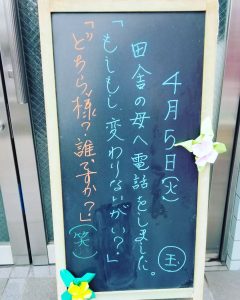 4月5日(火)
玉
田舎の母へ電話をしました。
「もしもし、変わりないがい?」
「どちら様?誰ですか?」
(笑)